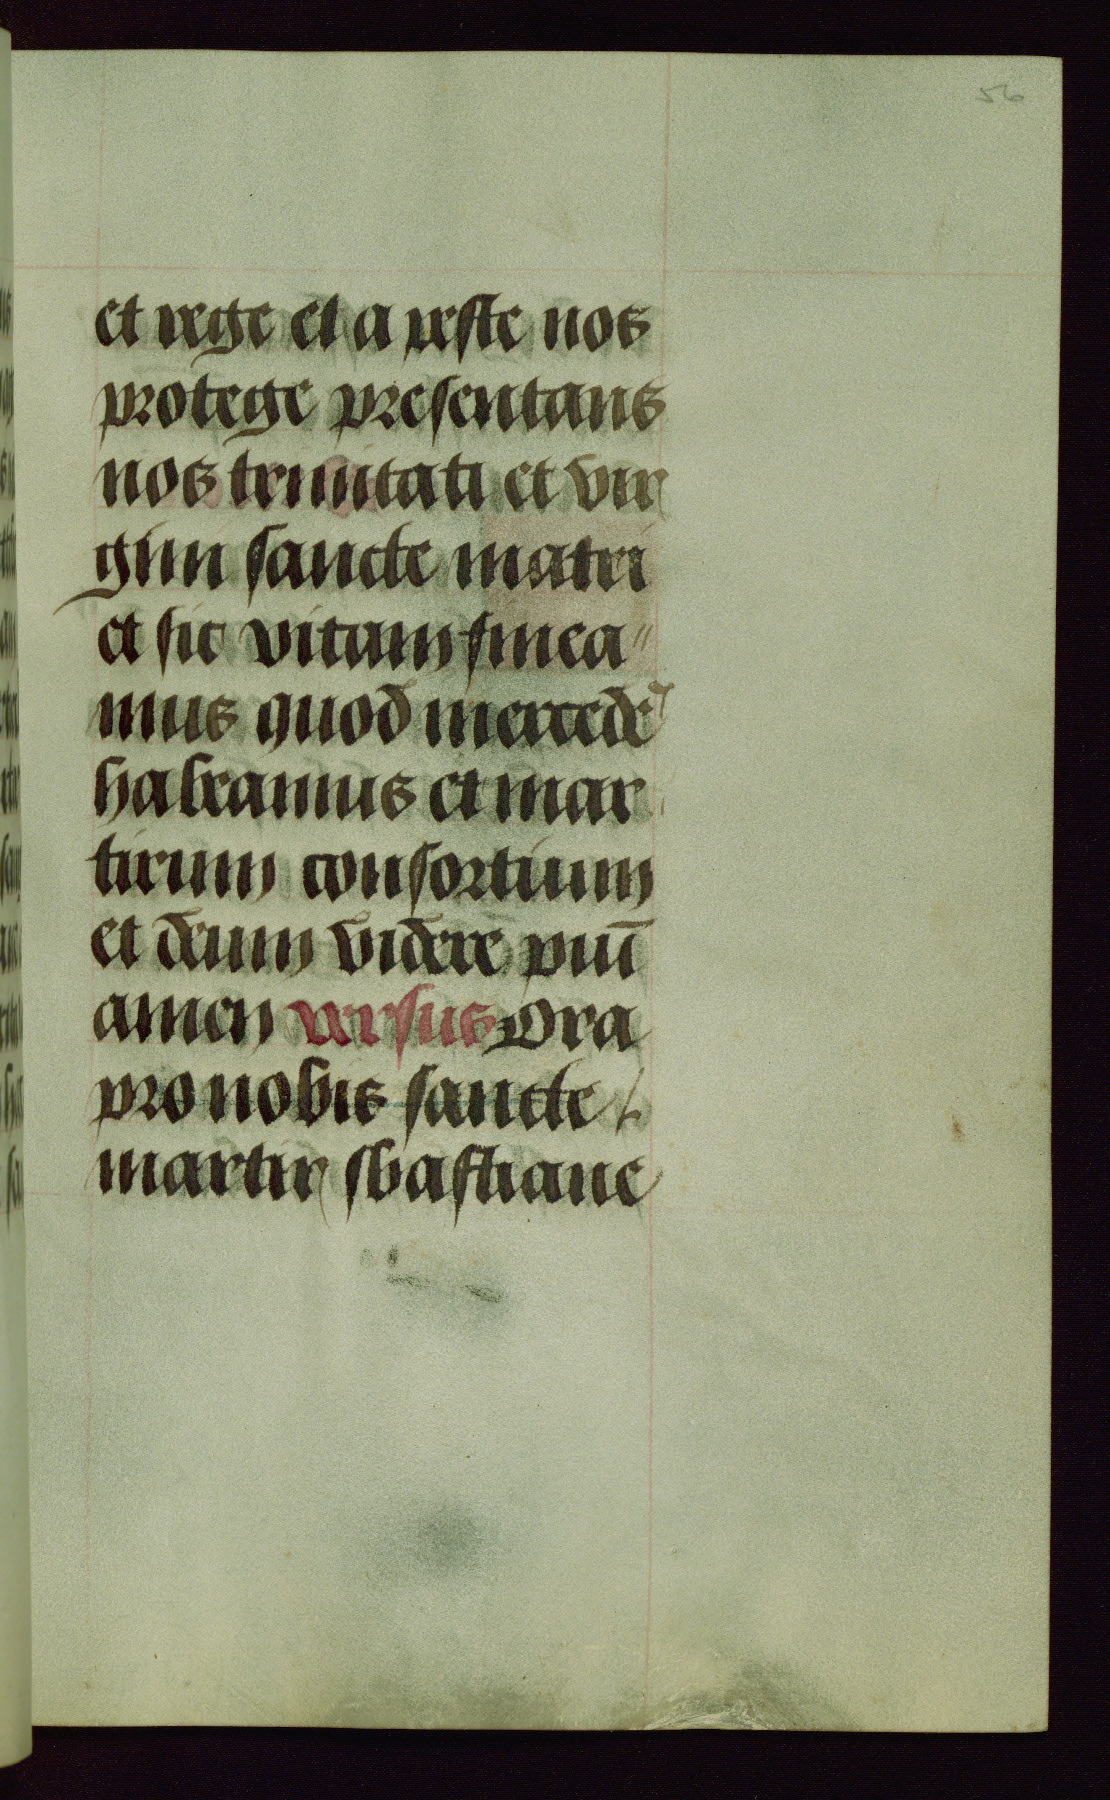 56
et rege et a peste nos
protege presentans
nos trinitati et vir
gini sancte matri
et sic vitam finea〃
mus quod mercedē
habeamus et mar
tirum consortium
et deum videre piūʼ
amen versus Ora
pro nobis sancte /.
martir sbastiane